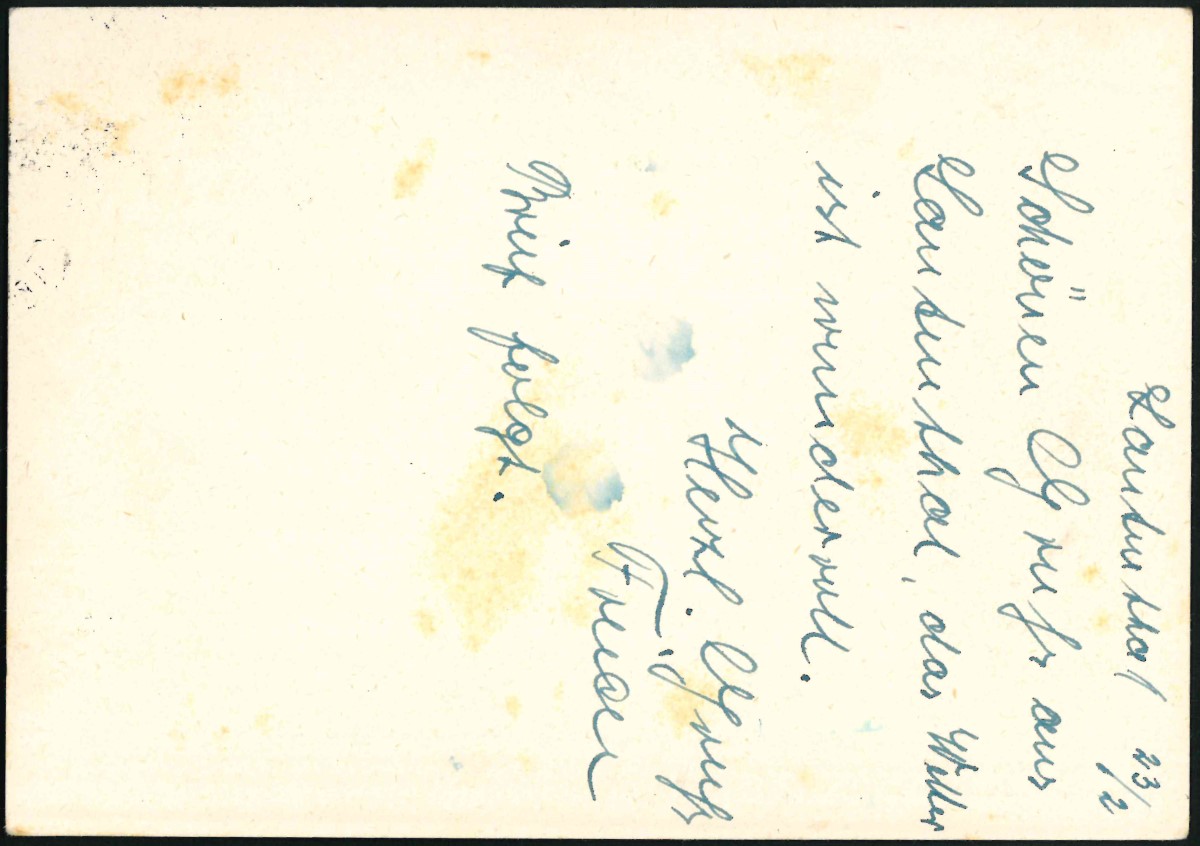 Lautenthal 23/2
Schönen Gruß aus
Lautenthal, das Wetter
ist wundervoll.
Herzl. Gruß
Brief folgt.